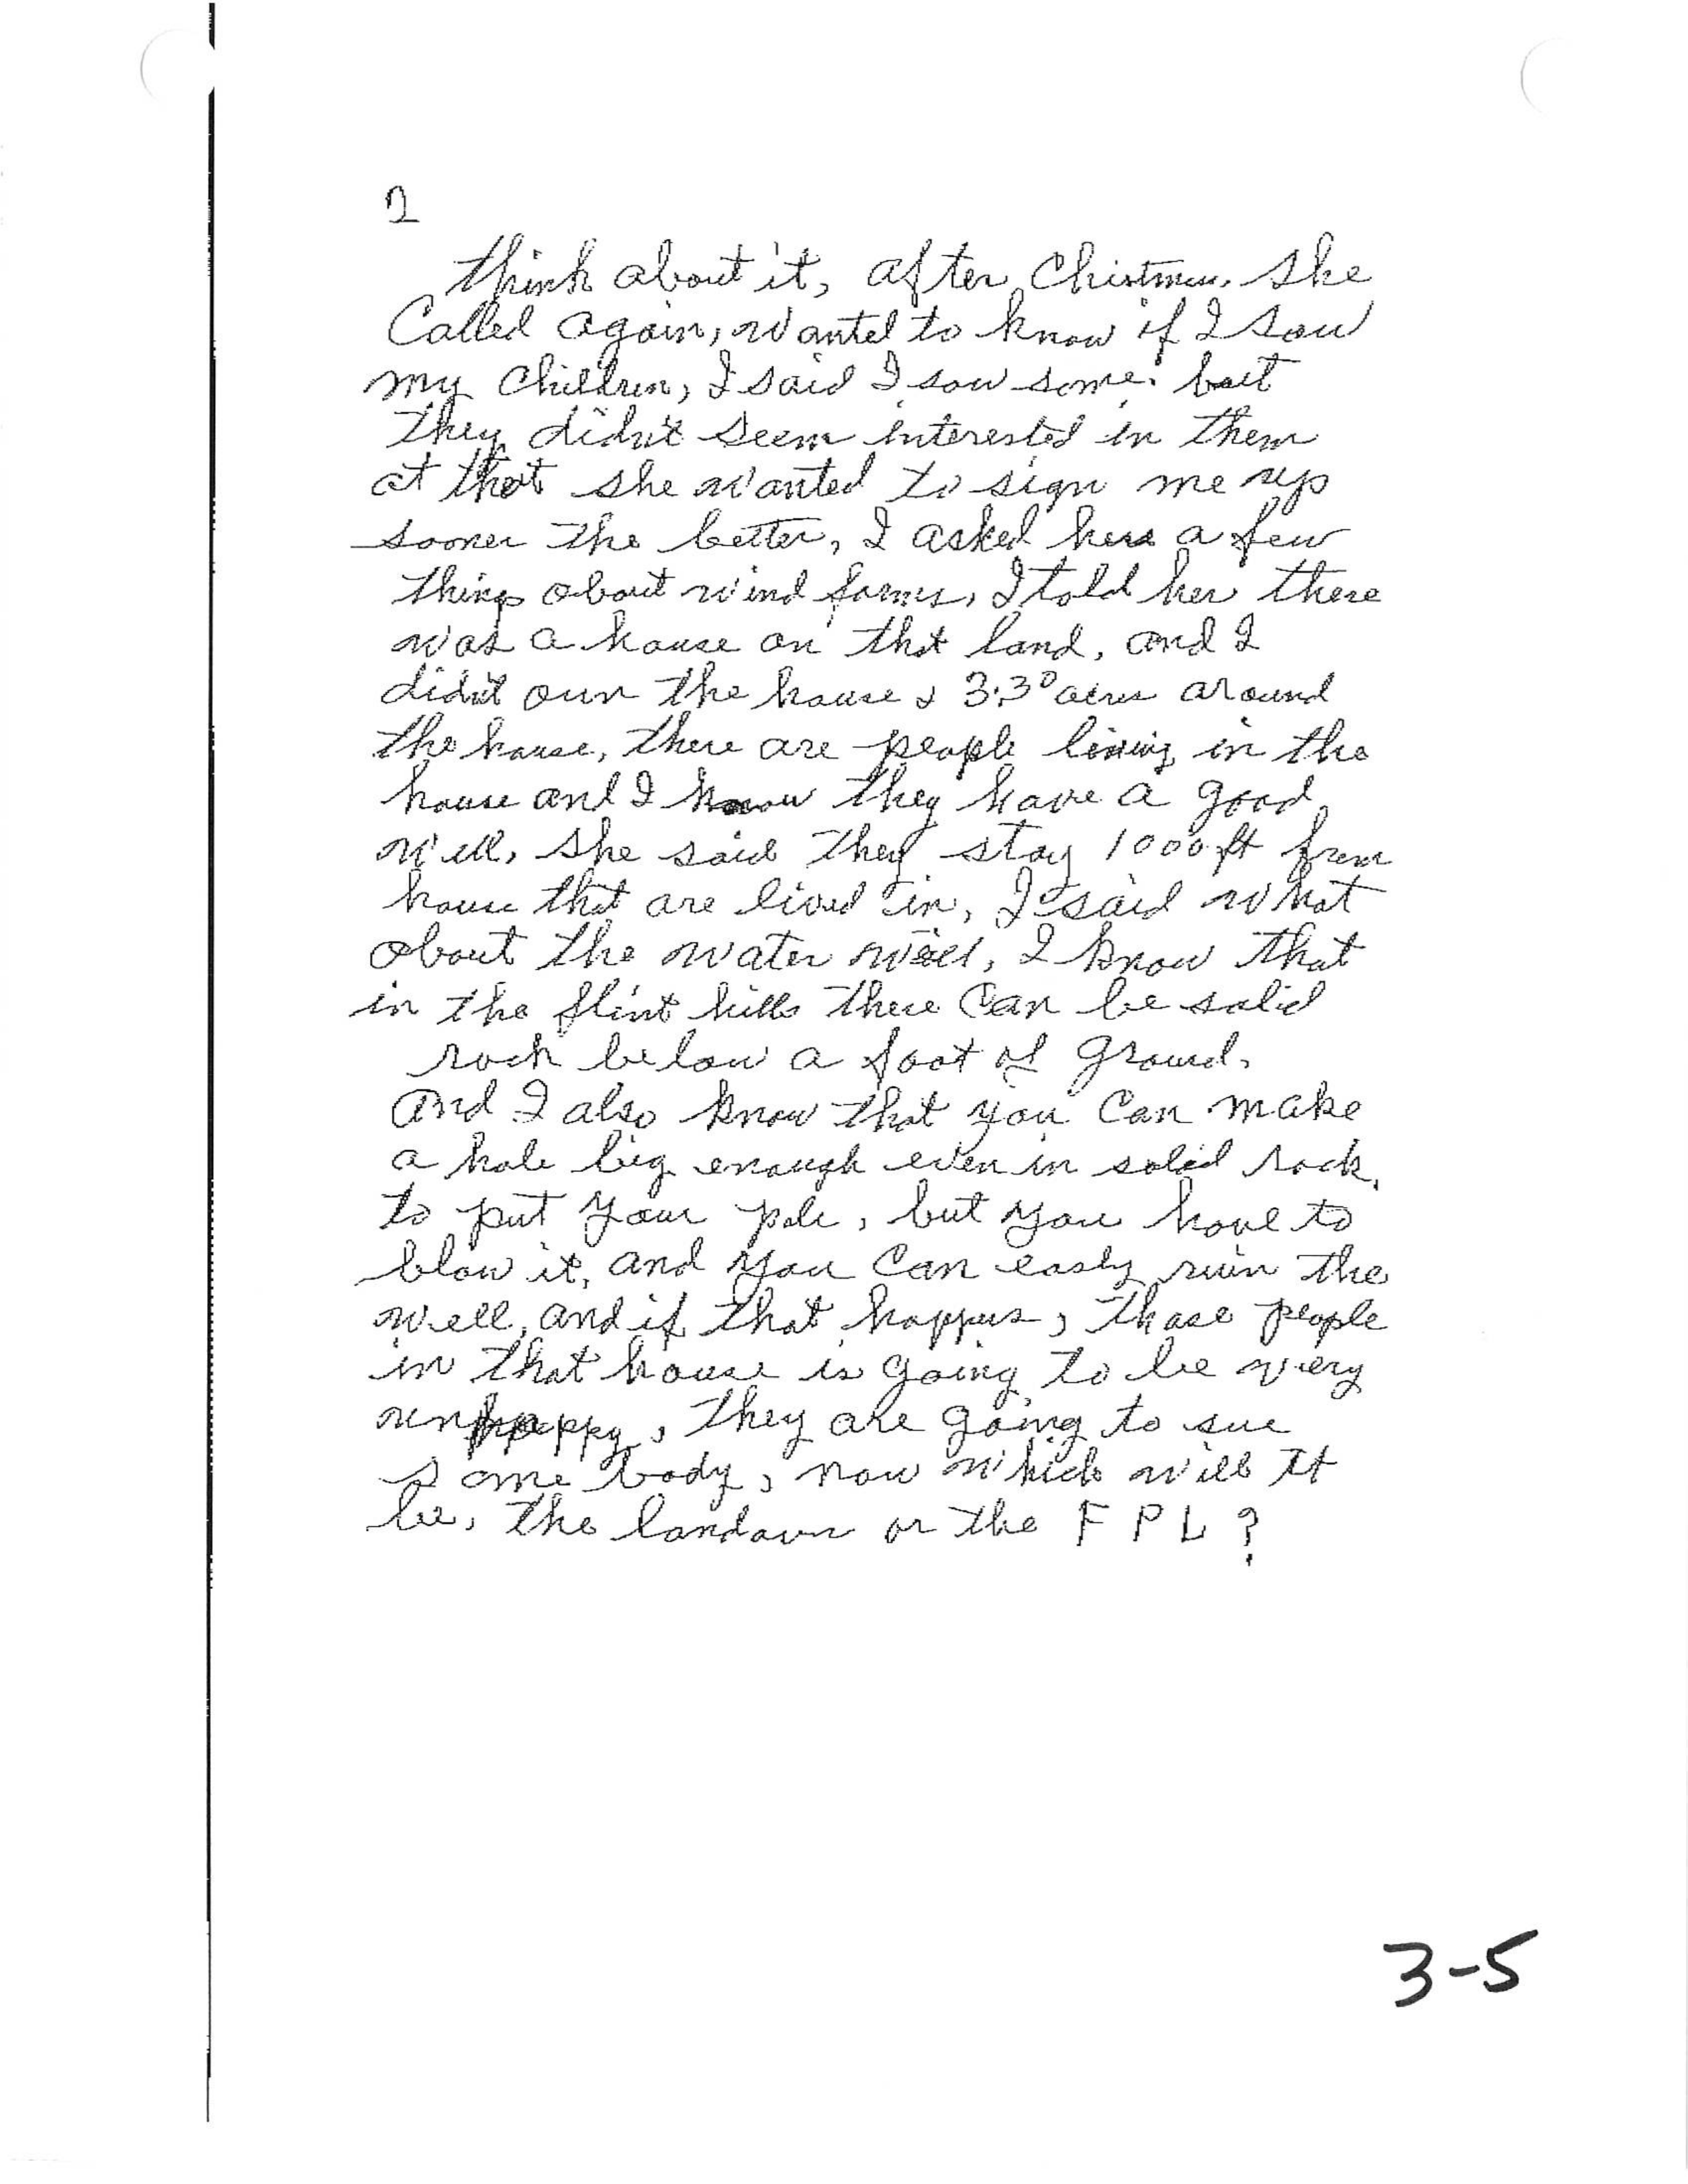 2
think about it, after Chistmas, she
Called again, wanted to know if I saw
my children, I said I saw some. but
they didn't seem interested in them
at that she wanted to sign me up
sooner the better, I asked her a few
things about wind farms, I told her there
was a house on that land, and I
didn't own the house & 3.3 acres around
the house, there are people living in the
house and I know they have a good
well, she said they stay 1000 ft from
house that are lived in, I said what
about the water well, I know that
in the flint hills there can be solid
rock below a foot of ground.
and I also know that you can make
a hole big enough even in solid rock,
to put your pole, but you have to
blow it, and you can easly ruin the
well, and if that happens, those people
in that house is going to be very
unhappy, they are going to sue
some body, now which will it
be, the landown or the FPL?
3-5